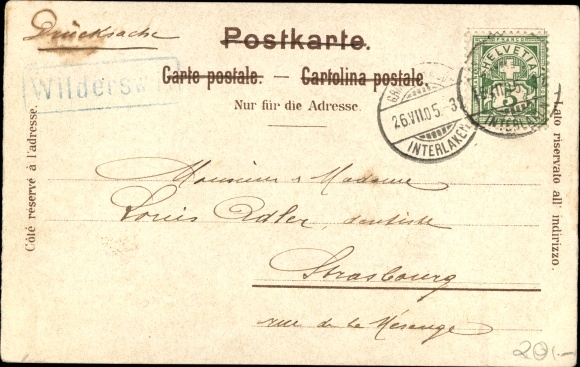 Drucksache
Postkarte.
Wilderswil
Carte postale. — Cartolina postale.
Nur für die Adresse.
Côté reservé à l'adresse.
Lato riservato all' indirizzo.
HELVETIA
FRANCO
5
26.VII.05.-3
INTERLAKEN
INTERL
Monsieur & Madame
Louis Adler, dentiste
Strasbourg
rue de la Mésange
20.-